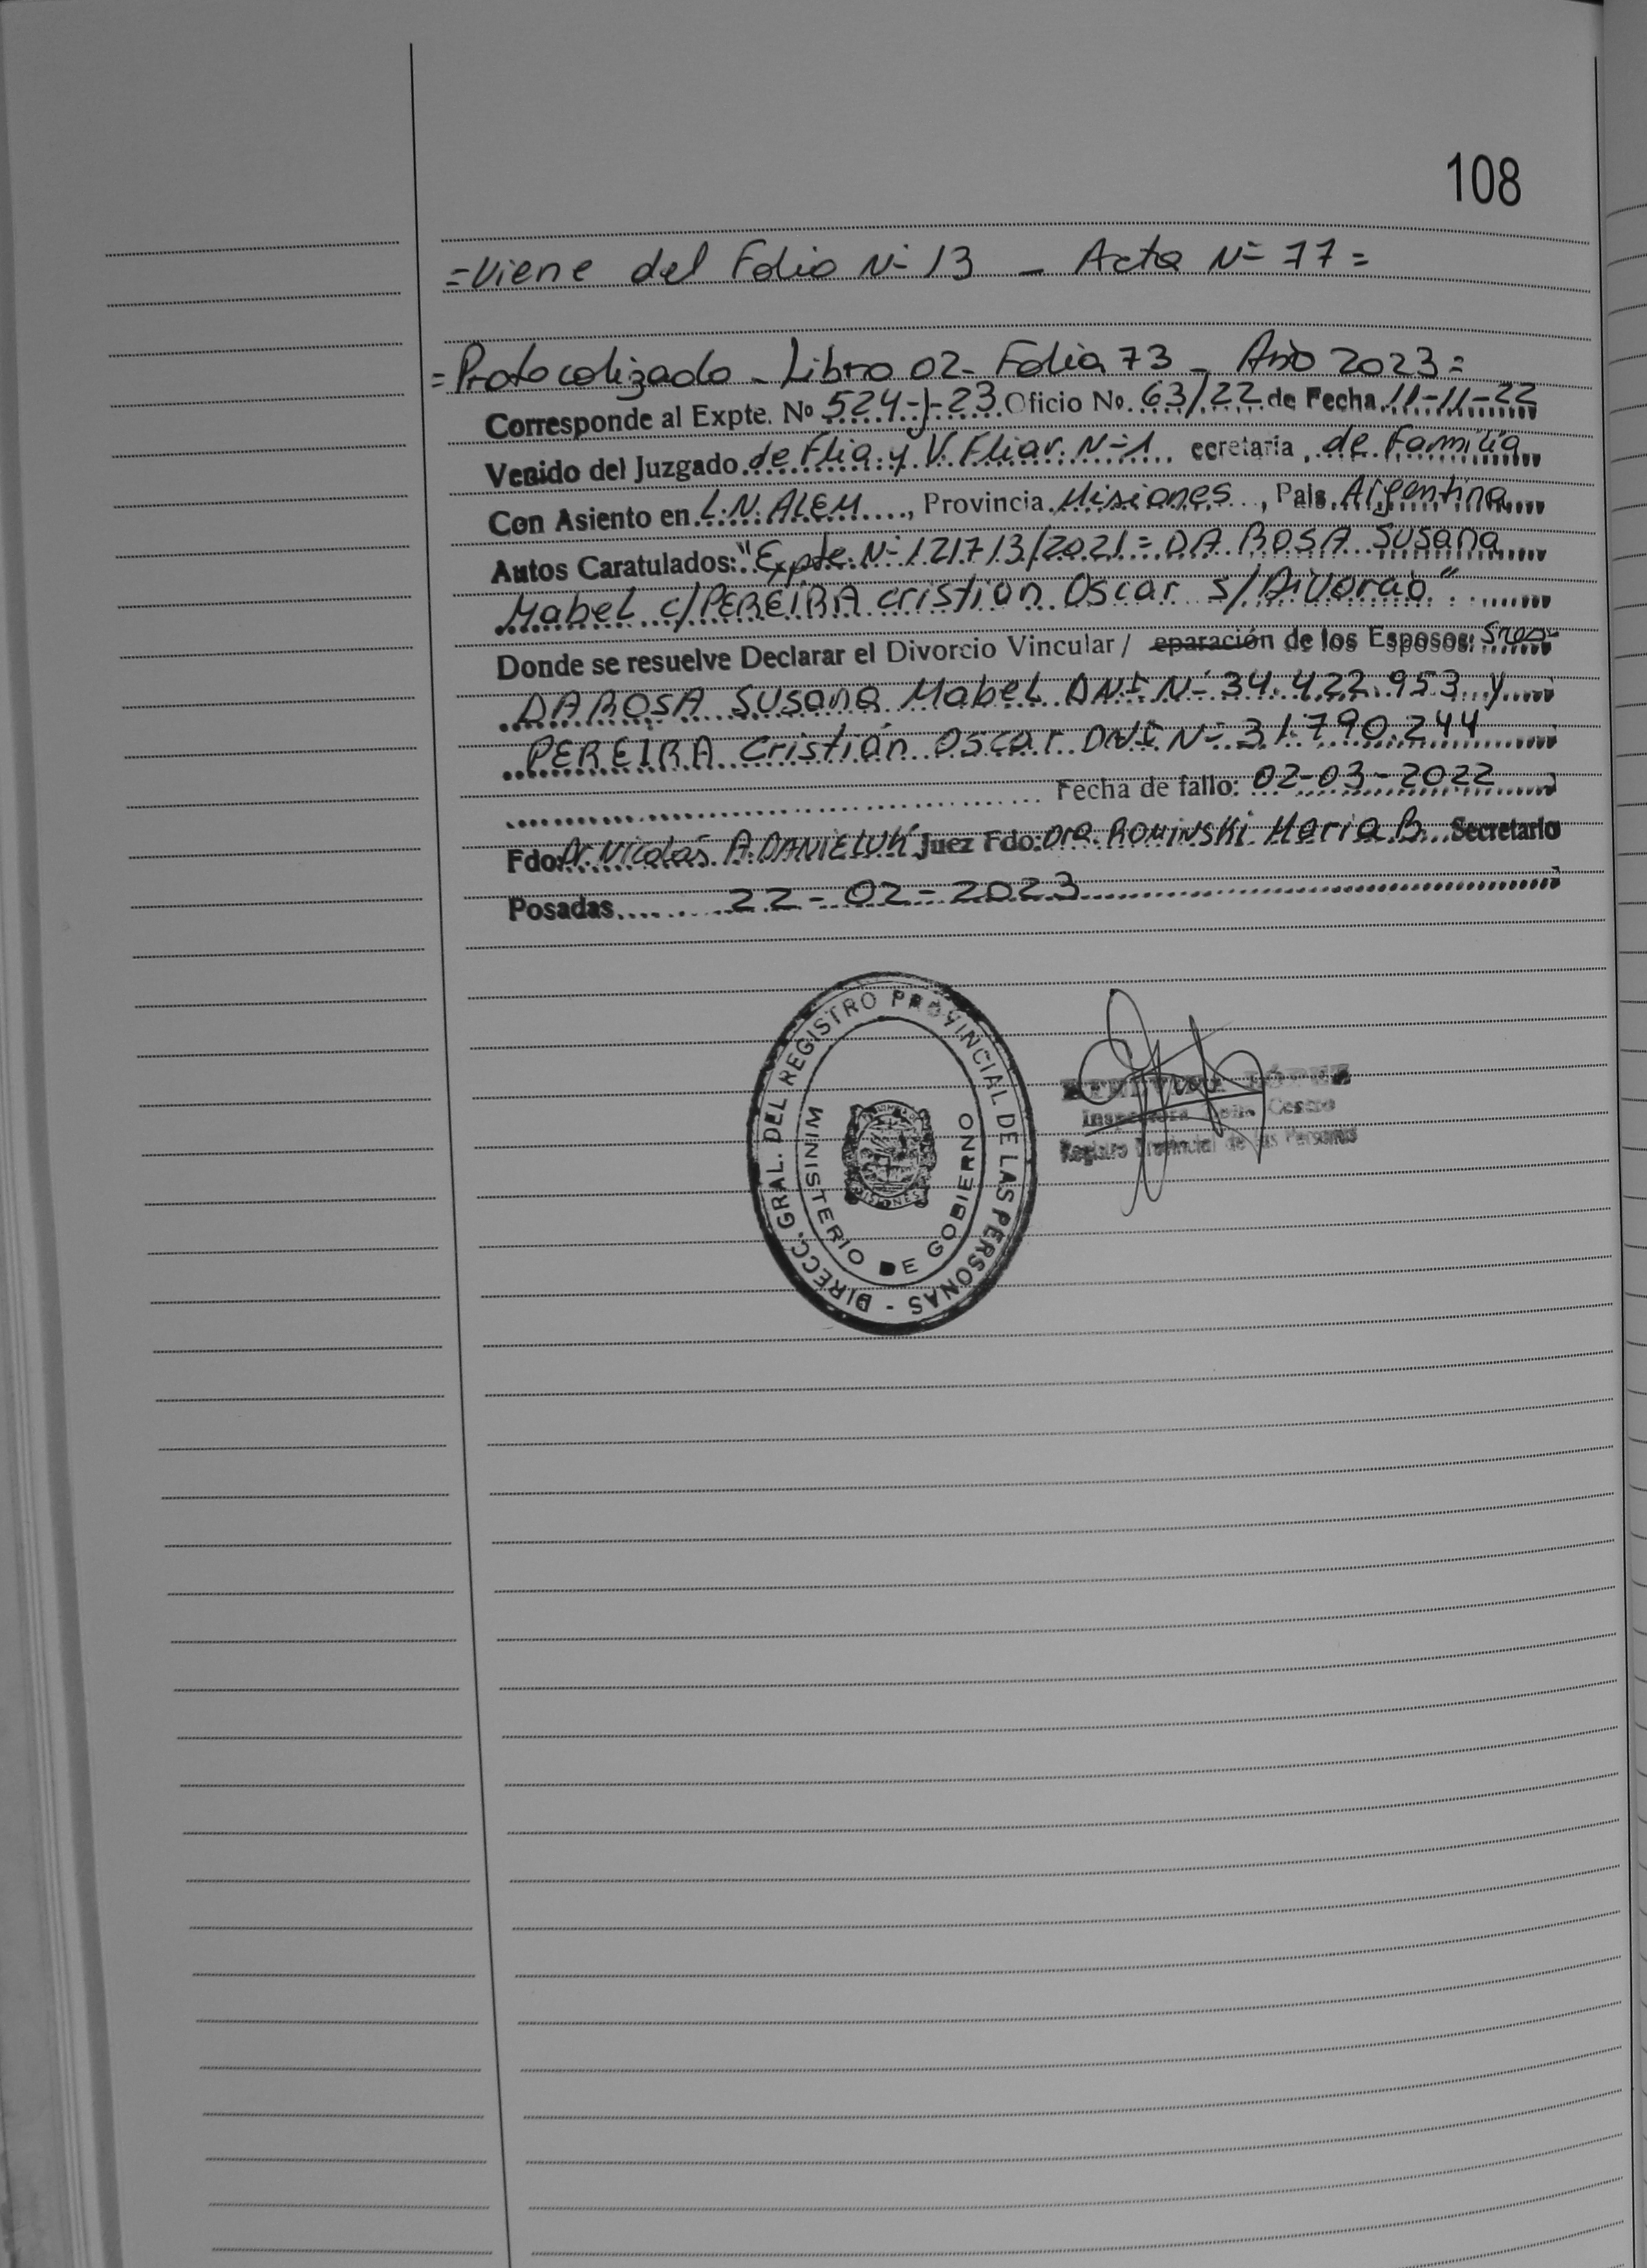 108
=Viene del Folio Nº 13 - Acta Nº 77=
=Protocolizado - Libro 02- Folio 73 - Año 2023=
Corresponde al Expte. Nº 524-J-23 Oficio Nº. 63/22 de Fecha 11-11-22
Venido del Juzgado de Flia. y V. Fliar. Nº1 ecretaria, de Familia
Con Asiento en L.N. ALEM, Provincia Misiones, País Argentina
Autos Caratulados: "Expte. Nº 121713/2021= DA ROSA Susana
Mabel c/PEREIRA cristian Oscar s/Divorcio"
Donde se resuelve Declarar el Divorcio Vincular / eparación de los Esposos: Sres-
DA ROSA Susana Mabel DNI Nº 34.422.953 y
PEREIRA Cristián Oscar DNI Nº 31.790.244
Fecha de fallo: 02-03-2022
Fdo: Dr. Nicolás A. DANIELUK Juez Fdo: Dra. ROMINSKI Maria B. Secretario
Posadas 22-02-2023
DIRECC. GRAL. DEL REGISTRO PROVINCIAL DE LAS PERSONAS -
MINISTERIO DE GOBIERNO
MISIONES
LÓPEZ
Inspectora Centro
Registro Provincial de las Personas